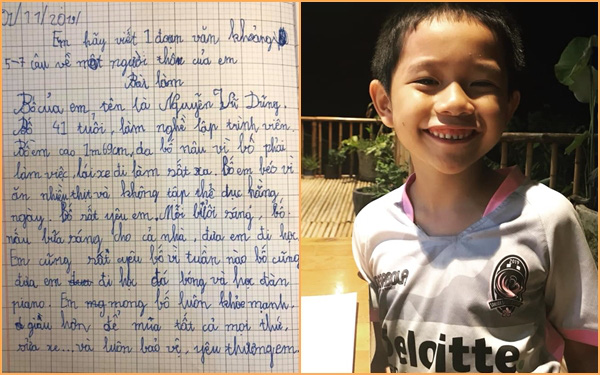 01/11/2019/
Em hãy viết 1 đoạn văn khoảng
5-7 câu về một người thân của em
Bài làm
Bố của em tên là Nguyễn Vũ Dũng.
Bố 41 tuổi, làm nghề lập trình viên.
Bố em cao 1m69cm, da bố nâu vì bố phải
làm việc, lái xe đi làm rất xa. bố em béo vì
ăn nhiều thứ và không tập thể dục hằng
ngay. bố rất yêu em. Mỗi buổi sáng, bố
nấu bữa sáng cho cả nhà, đưa em đi học.
Em cũng rất yêu bố vì tuần nào bố cũng
đưa em đi học đá bóng và học đàn
piano. Em mong bố luôn khỏe mạnh
giầu hơn để mua tất cả mọi thứ,
xe... và luôn bảo vệ, yêu thương em.
Deloitte